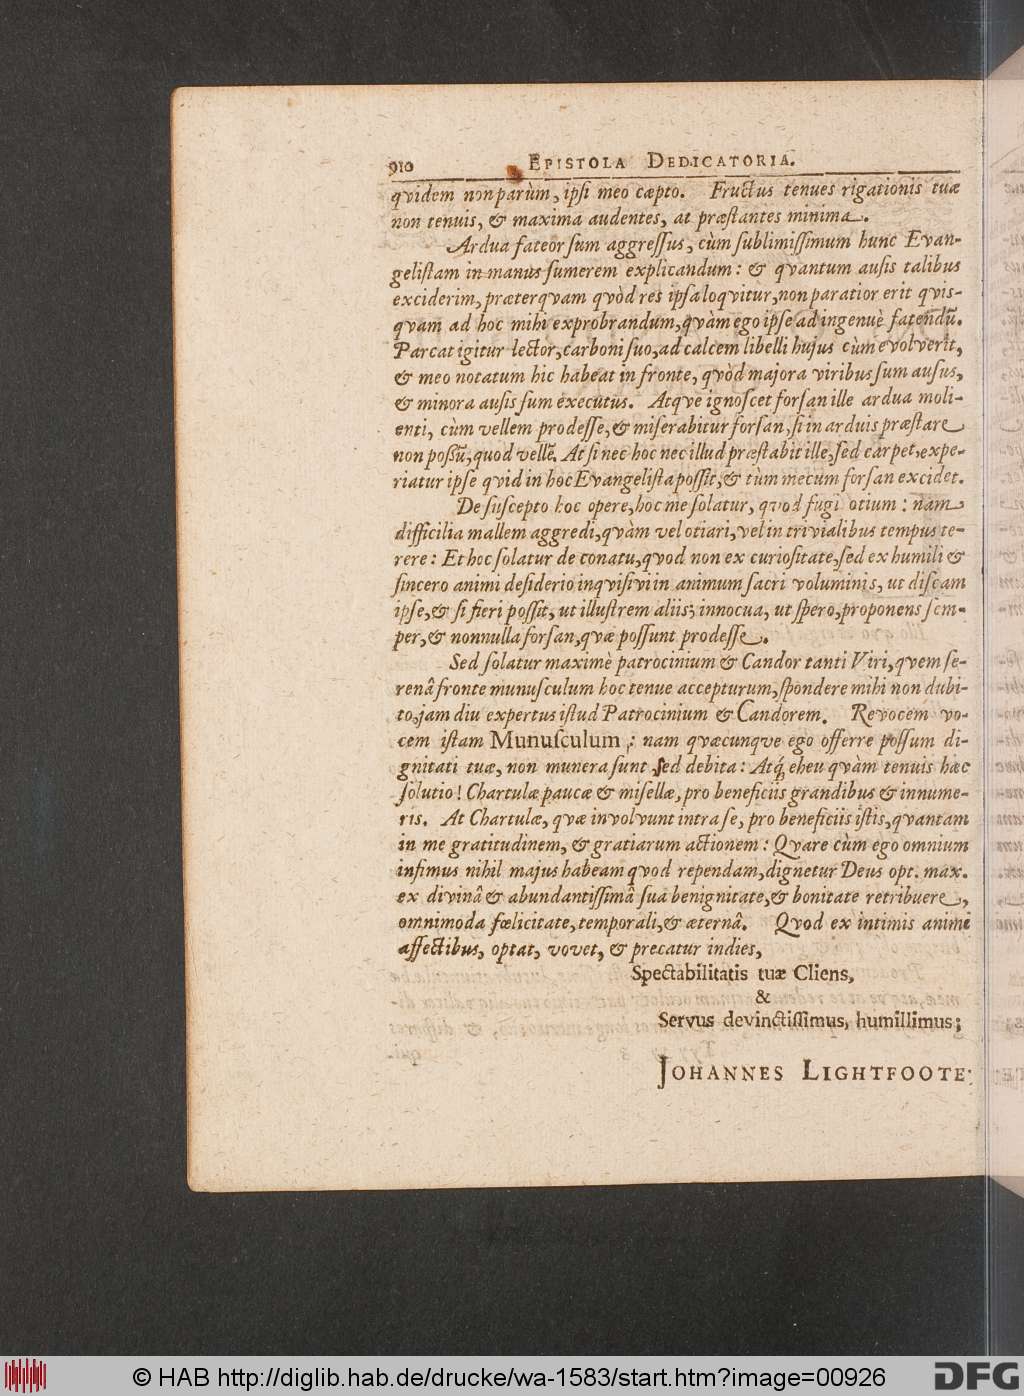 910 EPISTOLA DEDICATORIA.
qvidem non parùm, ipsi meo cæpto. Fructus tenues rigationis tuæ
non tenuis, & maxima audentes, at præstantes minima.
Ardua fateor sum aggressus, cùm sublimissimum hunc Evan-
gelistam in manus sumerem explicandum: & qvantum ausis talibus
exciderim, præterqvam qvòd res ipsa loqvitur, non paratior erit qvis-
qvam ad hoc mihi exprobrandum, qvàm ego ipse ad ingenuè fatendū.
Parcat igitur lector, carboni suo, ad calcem libelli hujus cùm evolverit,
& meo notatum hic habeat in fronte, qvòd majora viribus sum ausus,
& minora ausis sum executus. Atqve ignoscet forsan ille ardua moli-
enti, cùm vellem prodesse, & miserabitur forsan, si in arduis præstare
non possū, quod vellē. At si nec hoc nec illud præstabit ille, sed carpet, expe-
riatur ipse qvid in hoc Evangelista possit, & tùm mecum forsan excidet.
De suscepto hoc opere, hoc me solatur, qvod fugi otium: nam
difficilia mallem aggredi, qvàm vel otiari, vel in trivialibus tempus te-
rere: Et hoc solatur de conatu, qvod non ex curiositate, sed ex humili &
sincero animi desiderio inqvisivi in animum sacri voluminis, ut discam
ipse, & si fieri possit, ut illustrem aliis; innocua, ut spero, proponens sem-
per, & nonnulla forsan, qvæ possunt prodesse.
Sed solatur maximè patrocinium & Candor tanti Viri, qvem se-
renâ fronte munusculum hoc tenue accepturum, spondere mihi non dubi-
to, jam diu expertus istud Patrocinium & Candorem. Revocem vo-
cem istam Munusculum: nam qvæcunqve ego offerre possum di-
gnitati tuæ, non munera sunt sed debita: Atq́ eheu qvàm tenuis hæc
solutio! Chartulæ paucæ & misellæ, pro beneficiis grandibus & innume-
ris. At Chartulæ, qvæ involvunt intra se, pro beneficiis istis, qvantam
in me gratitudinem, & gratiarum actionem: Qvare cùm ego omnium
infimus nihil majus habeam qvod rependam, dignetur Deus opt. max.
ex divinâ & abundantissimâ sua benignitate, & bonitate retribuere,
omnimoda fœlicitate, temporali, & æternâ. Qvod ex intimis animi
affectibus, optat, vovet, & precatur indies,
Spectabilitatis tuæ Cliens,
&
Servus devinctissimus, humillimus;
JOHANNES LIGHTFOOTE.
© HAB http://diglib.hab.de/drucke/wa-1583/start.htm?image=00926
DFG